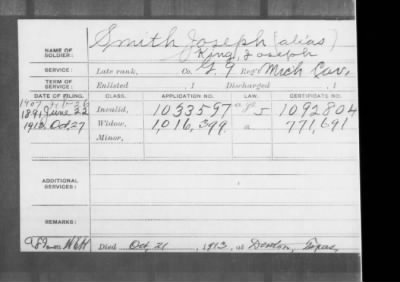 NAME OF SOLDIER: Smith Joseph (alias)
King, Joseph
SERVICE: Late rank, Co. G. 9 Reg't Mich Cav.
TERM OF SERVICE: Enlisted , 1 Discharged , 1
DATE OF FILING. CLASS. APPLICATION NO. LAW. CERTIFICATE NO.
1907
1891 June 22 Invalid, 1033597 1092804
1913 Oct, 27 Widow, 1,016,399 a 771,691
Minor,
ADDITIONAL SERVICES:
REMARKS:
Died Oct, 21, 1913, at Texas,